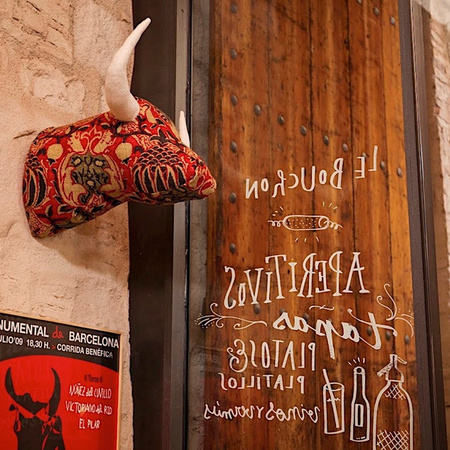 LE BOUCHON
APERITIVOS
tapas
PLATOS &
PLATILLOS
vinos vermús
NUMENTAL de BARCELONA
ULIO'09 18,30 H. > CORRIDA BENÉFICA
NÚÑEZ del CUVILLO
VICTORIANO del RIO
EL PILAR